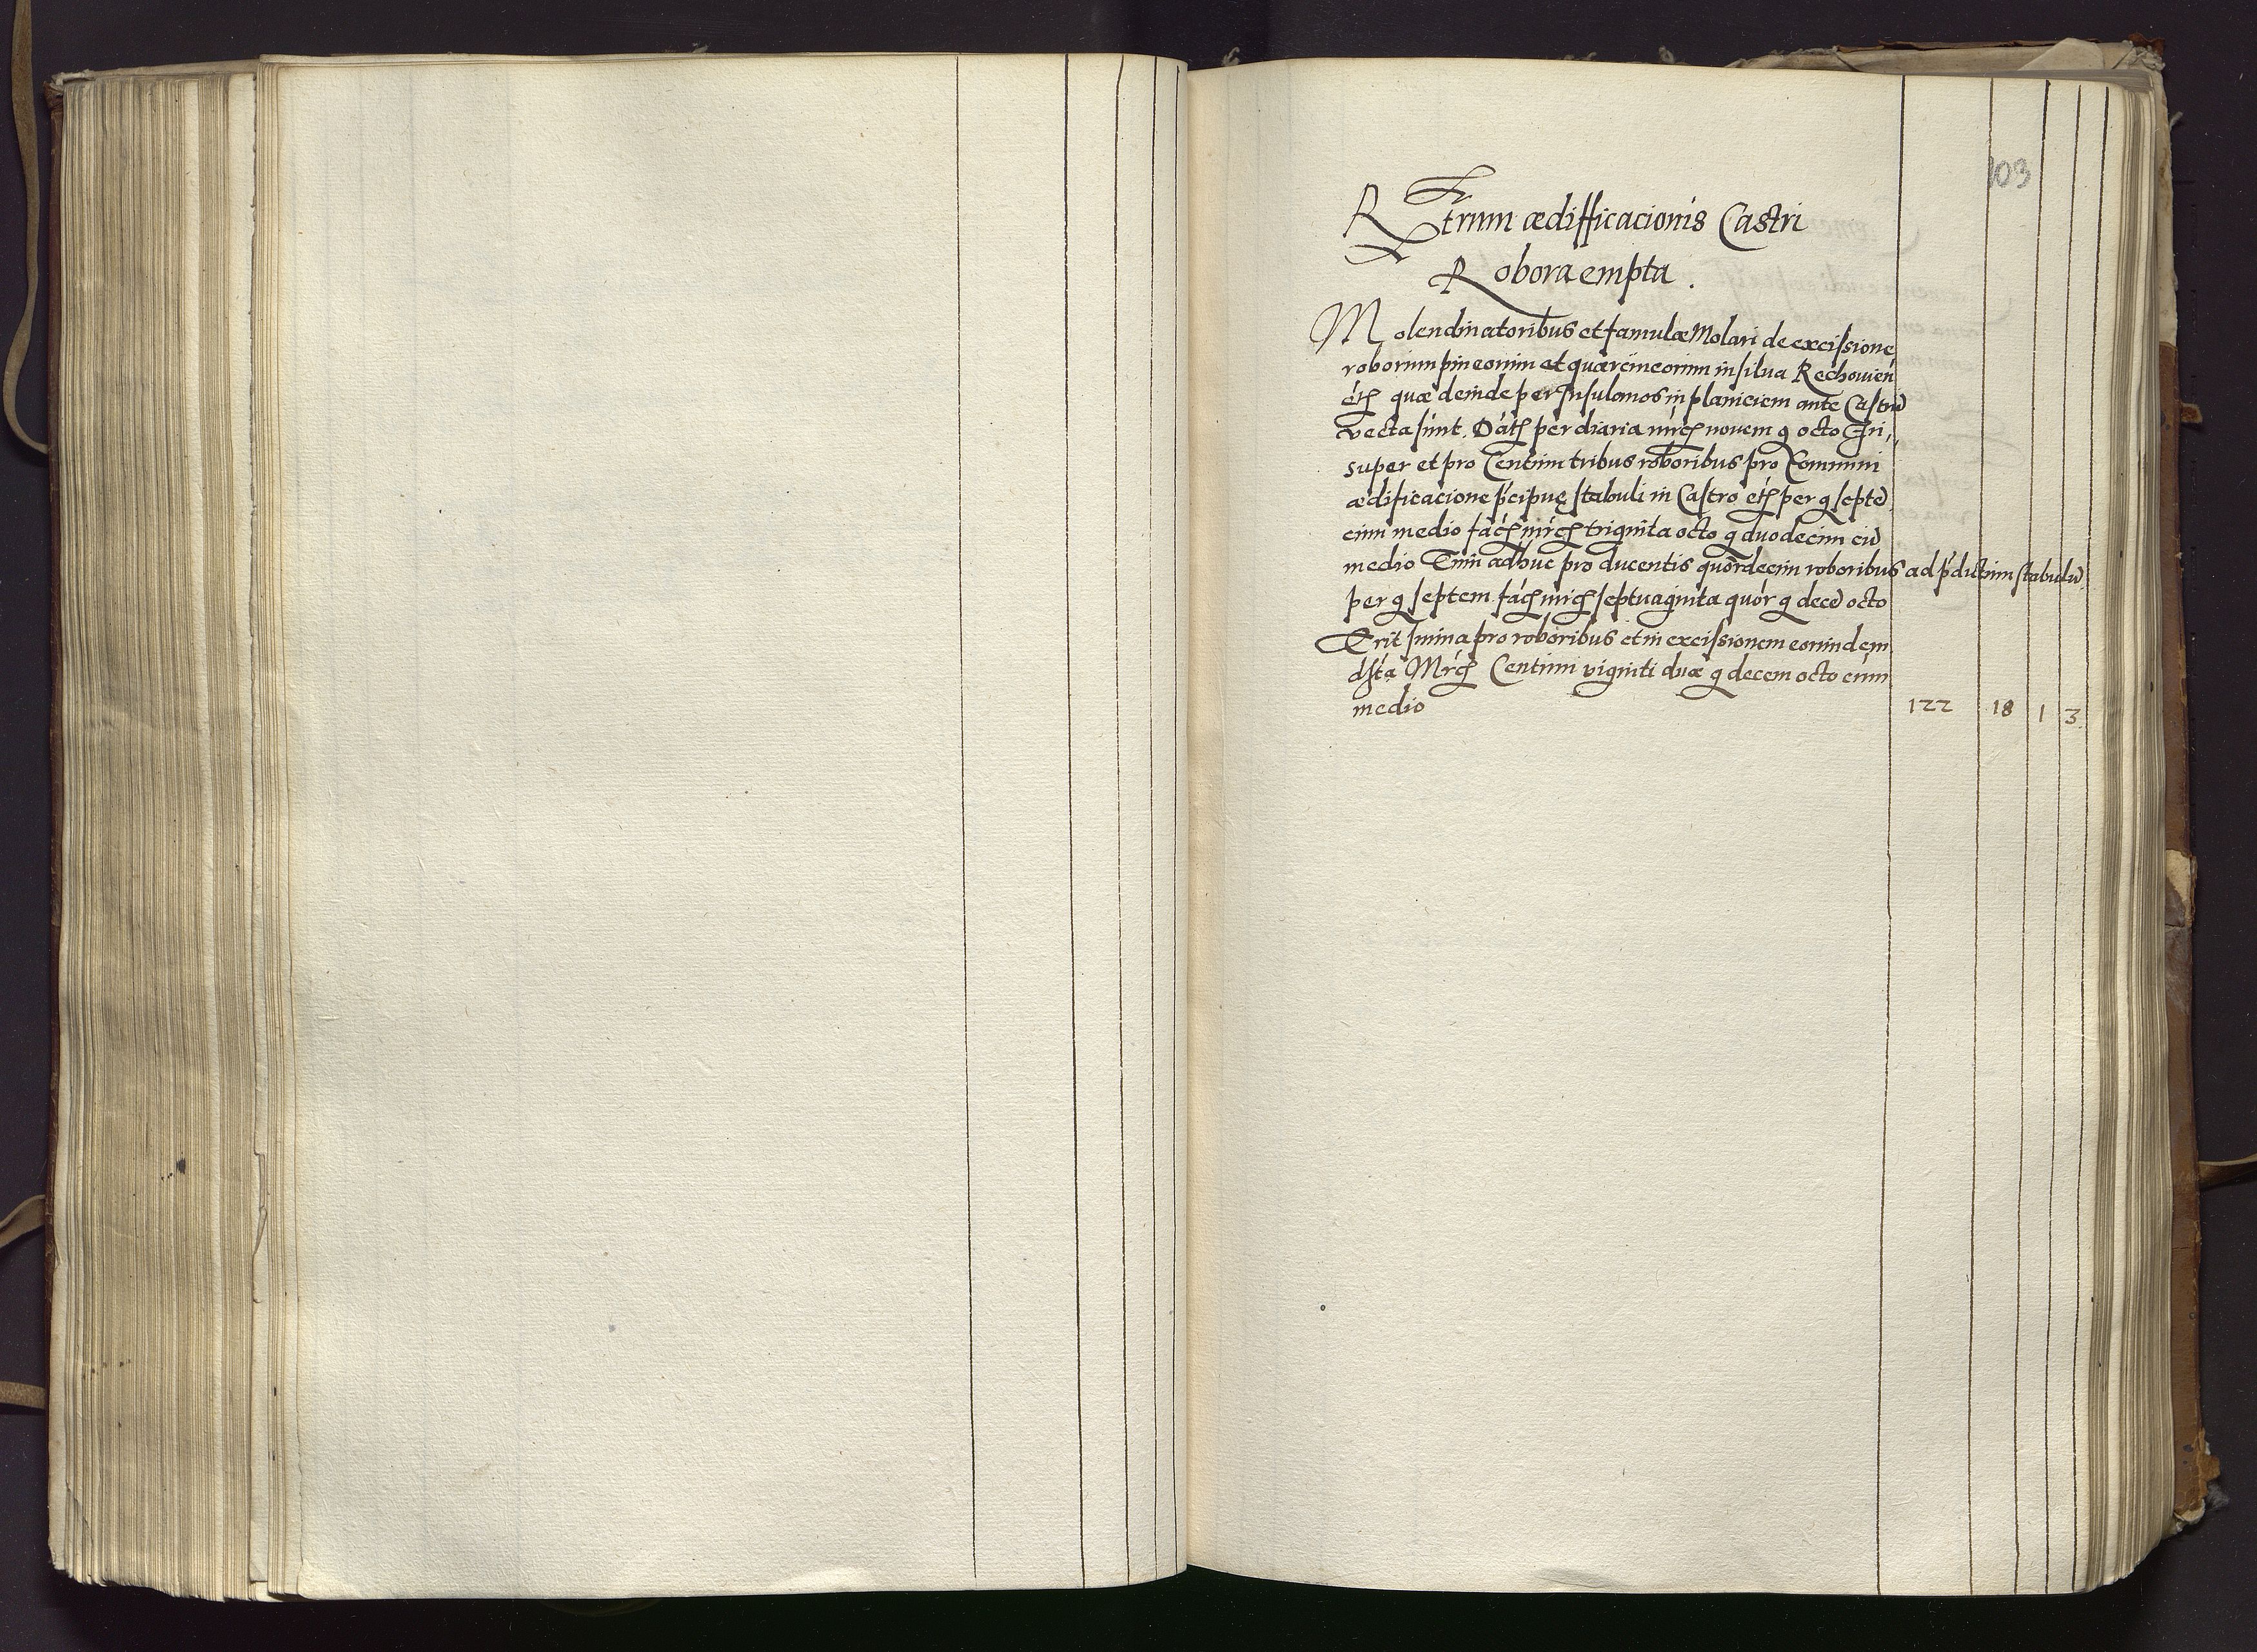 103
REtrum ædifficacionis Castri
Robora empta.
Molendinatoribus et famulæ Molari de excissione
roborum pineorum et quærcineorum in silua Rechouien
quæ deinde per Insulanos in planiciem ante Castrū
vecta sunt. Dat̃ per diaria mrc̃ novem q̃ octo Gri,
super et pro Centum tribus roboribus pro Communi
ædificacione p̃cipuę stabuli in Castro per q̃ septē
cum medio fac̃ mrc̃ triginta octo q̃ duodecim cū
medio Tum adhuc pro ducentis quordecim roboribus ad p̃dictum stabulū
per q̃ septem fac̃ mrc̃ septuaginta quor q̃ decē octo
Erit sm̃ma pro roboribus et in excissionem eorundem
dsta Mrc̃ Centum viginti duæ q̃ decem octo cum
medio 122 18 1 3